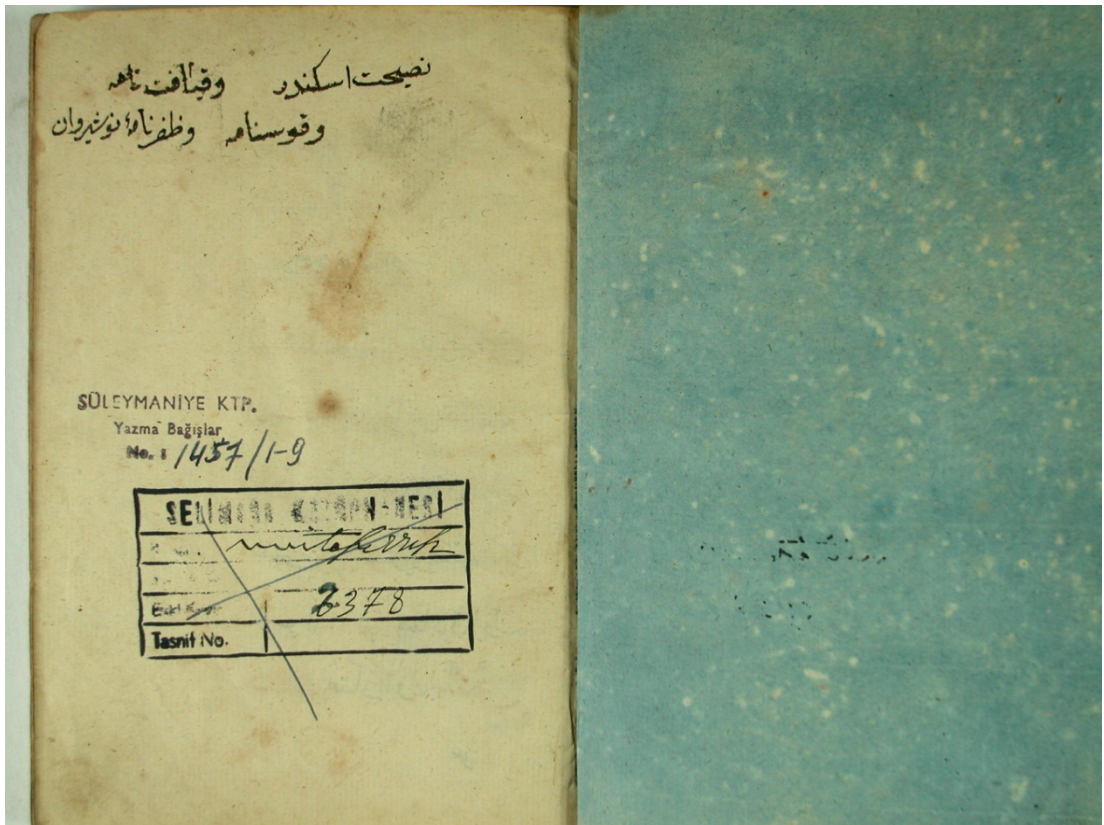 نصیحت اسكندر وقیافت نامه
وقوسنامه وظفرنامهٔ نوشیروان
SÜLEYMANİYE KTP.
Yazma Bağışlar
No. : 1457/1-9
SELİMİYE KÜTÜPHANESİ
müteferrik
Eski Kayıt 2378
Tasnif No.